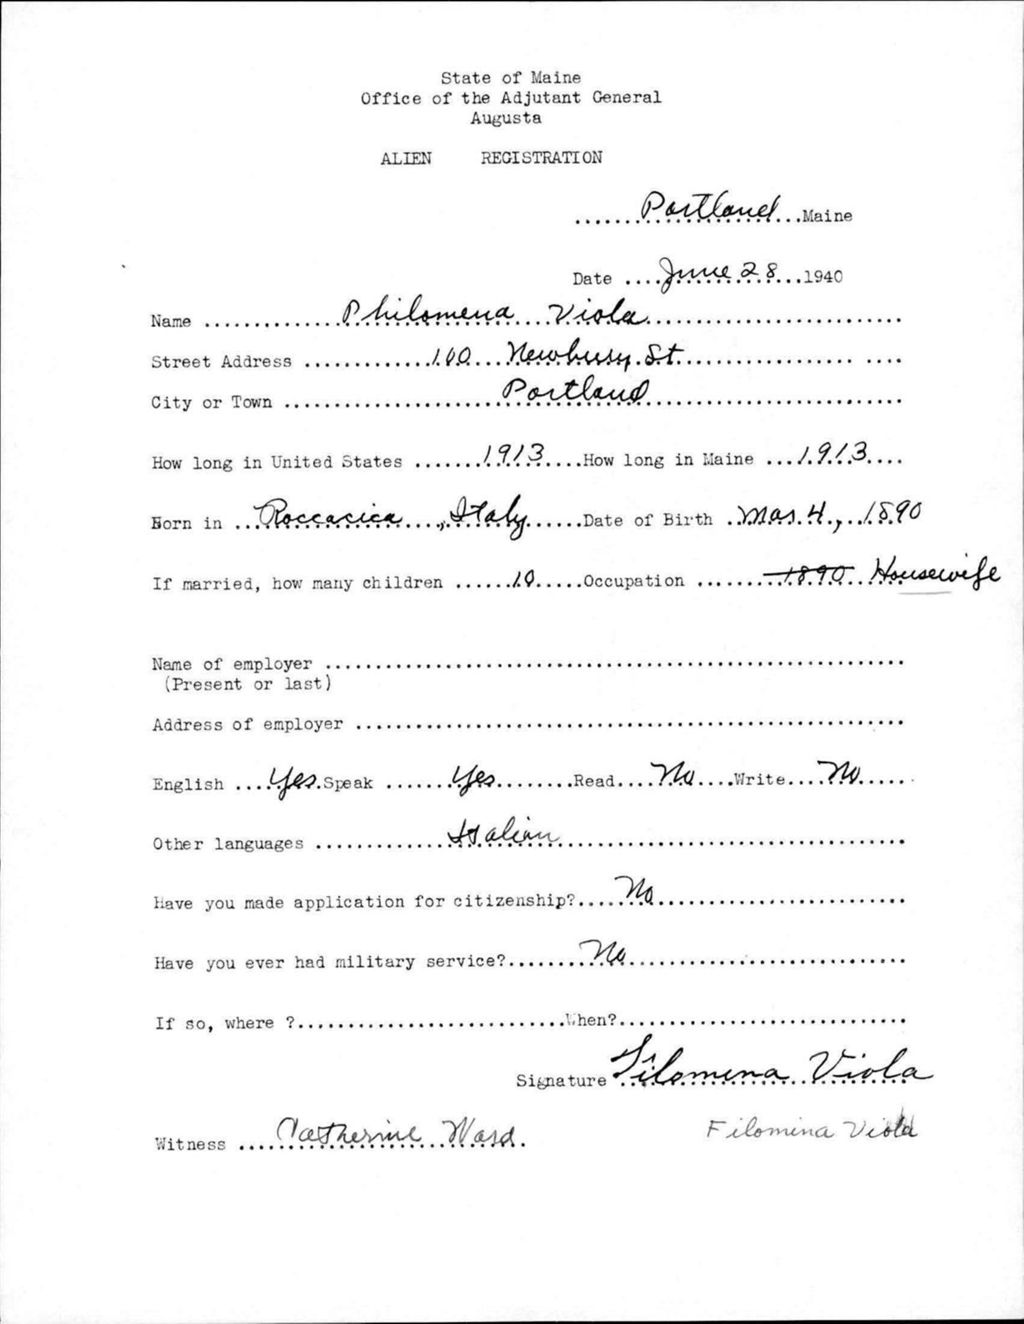 State of Maine
Office of the Adjutant General
Augusta
ALIEN REGISTRATION
.......Portland...Maine
Date ....June 28...1940
Name ..............Philomena...Viola..........................
Street Address .............100...Newbury.St..................... ....
City or Town ......................Portland..........................
How long in United States .......1913....How long in Maine ...1913....
Born in ...Roccacica....,Italy......Date of Birth .Mar.4.,..1890
If married, how many children ......10.....Occupation .......1890..Housewife
Name of employer ..........................................................
(Present or last)
Address of employer .......................................................
English ....Yes.Speak .......Yes........Read....No....Write....No......
Other languages .............Italian...................................
Have you made application for citizenship?.....No.........................
Have you ever had military service?........No............................
If so, where ?...........................When?.............................
Signature Filomena..Viola
Witness ....Catherine..Ward. Filomina Viola